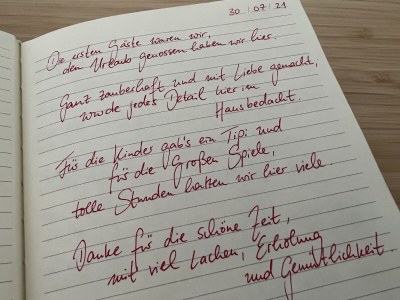 30 | 07 | 21
Die ersten Gäste waren wir,
den Urlaub genossen haben wir hier.
Ganz zauberhaft und mit Liebe gemacht,
wurde jedes Detail hier im
Haus bedacht.
Für die Kinder gab's ein Tipi und
für die Großen Spiele,
tolle Stunden hatten wir hier viele
Danke für die schöne Zeit,
mit viel Lachen, Erholung
und Gemütlichkeit